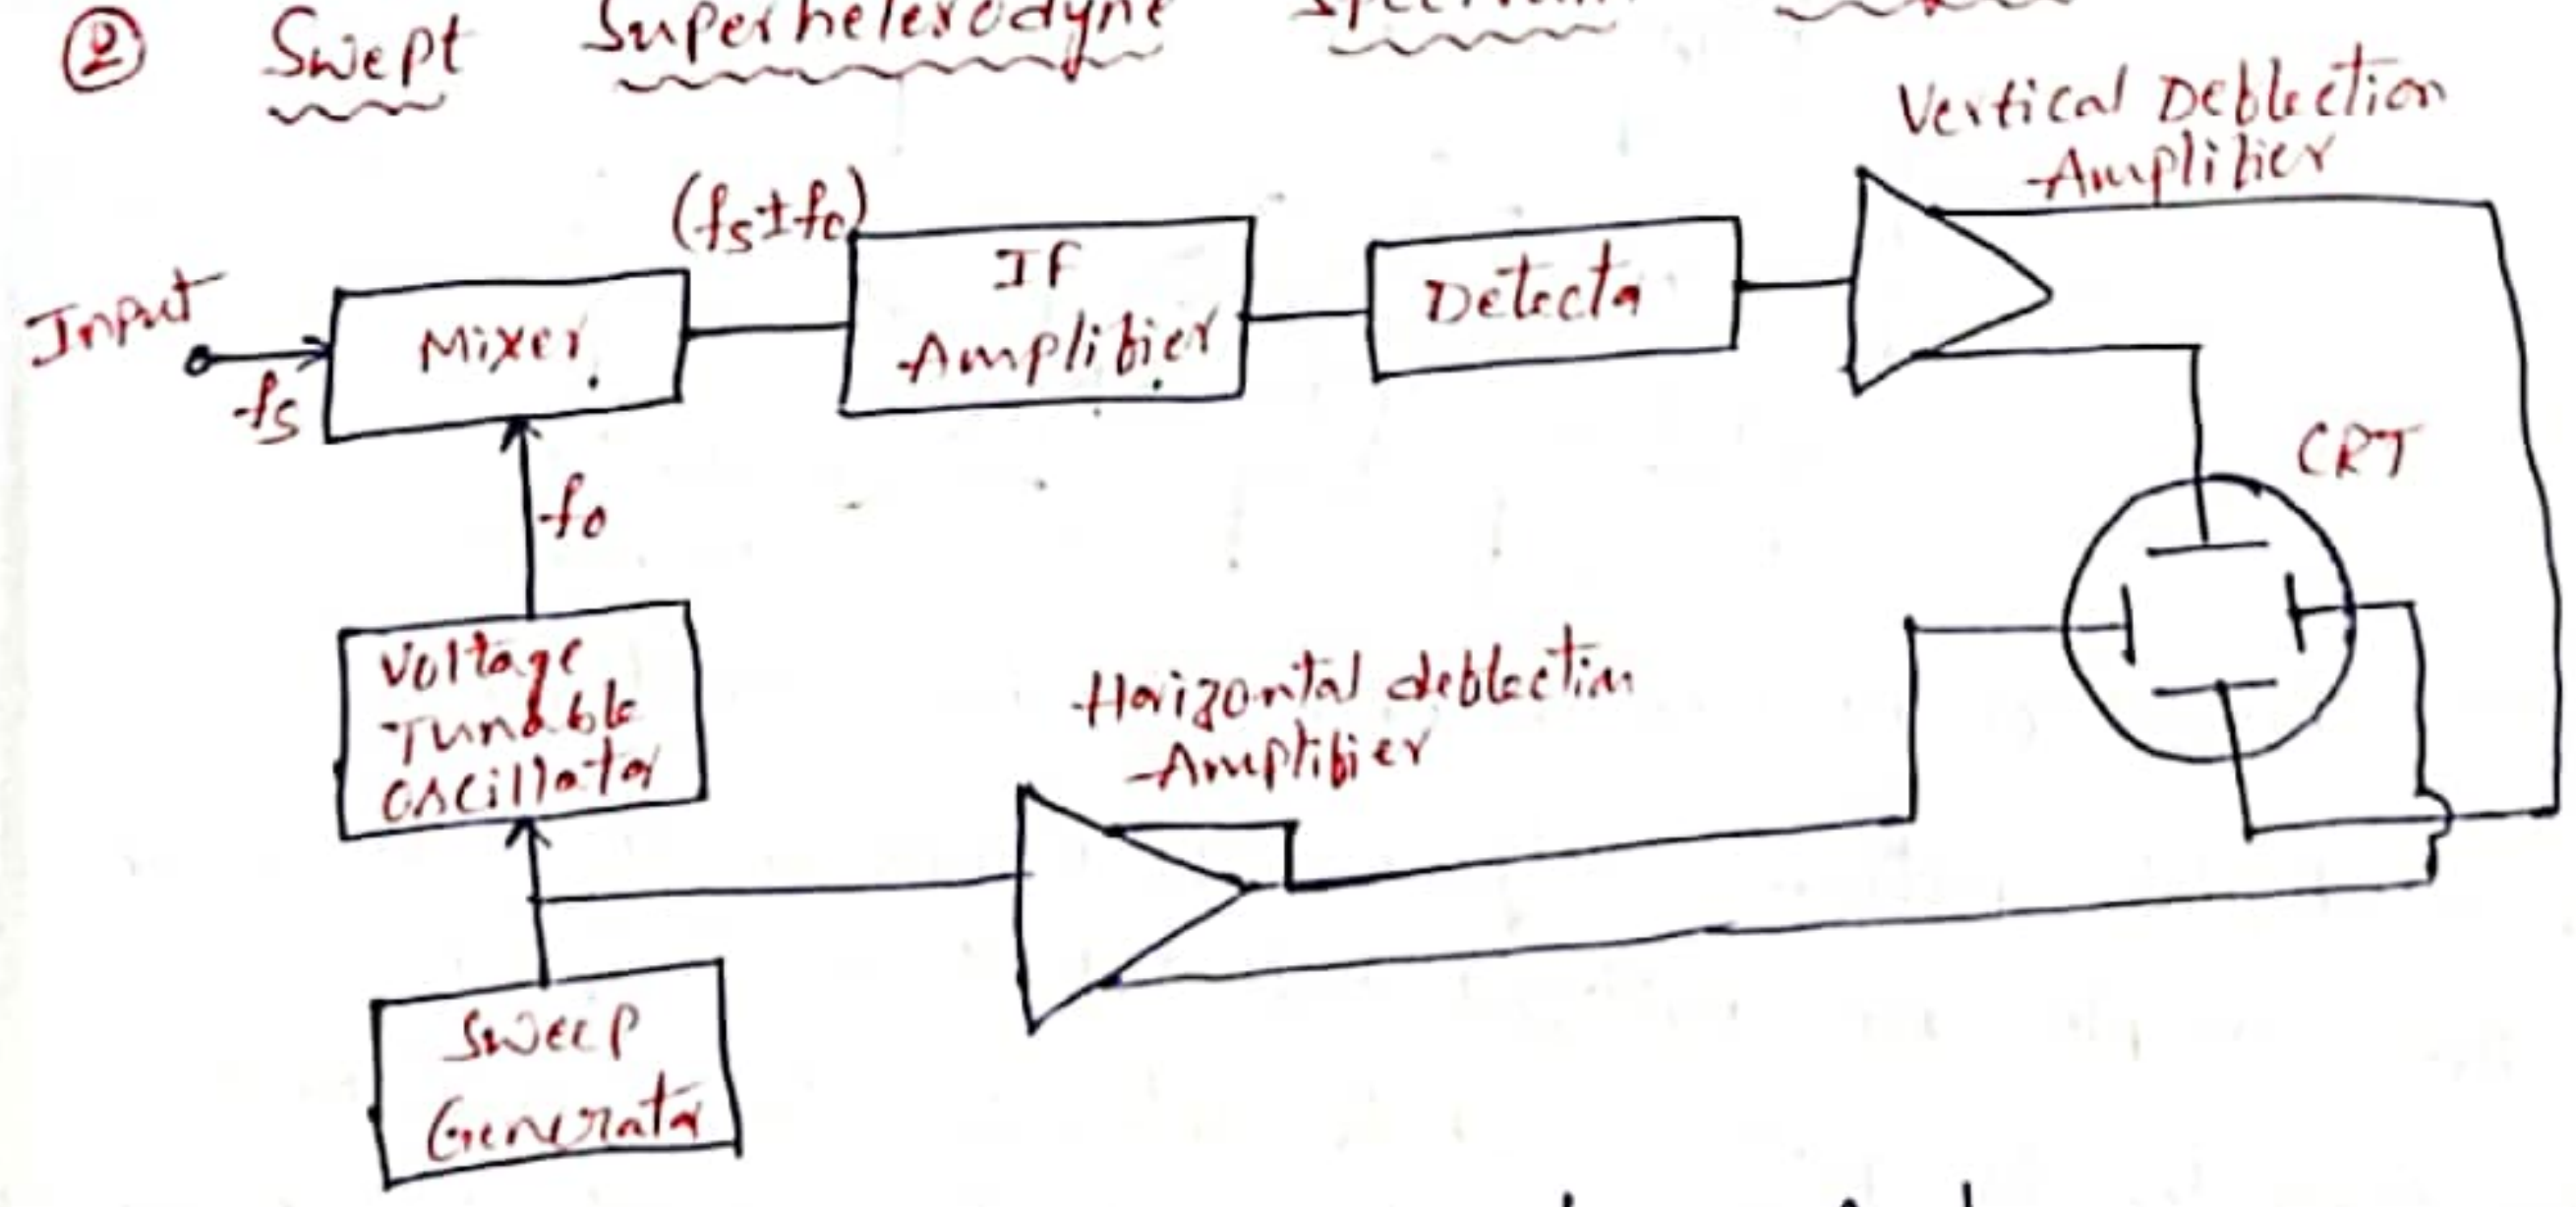 ② Swept Superheterodyne Spectrum
Vertical Deflection
Amplifier
(fs±fo)
Input
fs
Mixer
IF
Amplifier
Detector
fo
CRT
Voltage
Tunable
Oscillator
Horizontal deflection
Amplifier
Sweep
Generator